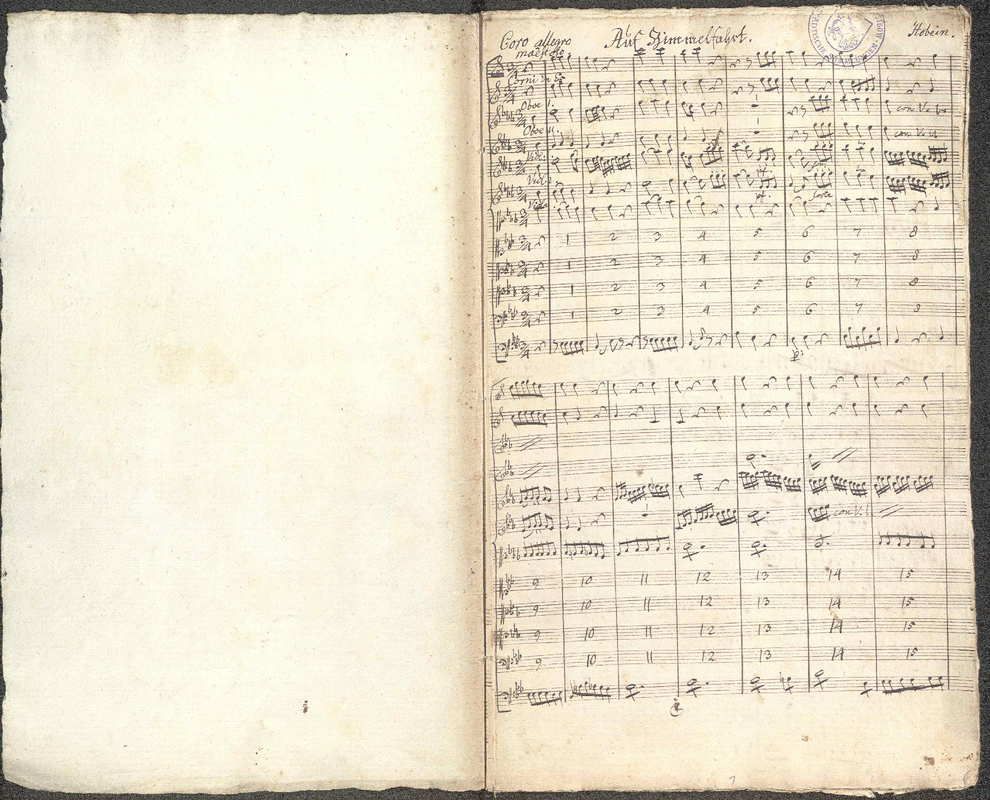 Coro allegro Auf Himmelfahrt. Hebein.
maestoso
Corni in Es
Oboe 1.
con Vi
Oboe II.
con Vi
Viol:
Viol:
Viola
1 2 3 4 5 6 7 8
1 2 3 4 5 6 7 8
1 2 3 4 5 6 7 8
1 2 3 4 5 6 7 8
p:
con V. 1
9 10 11 12 13 14 15
9 10 11 12 13 14 15
9 10 11 12 13 14 15
9 10 11 12 13 14 15